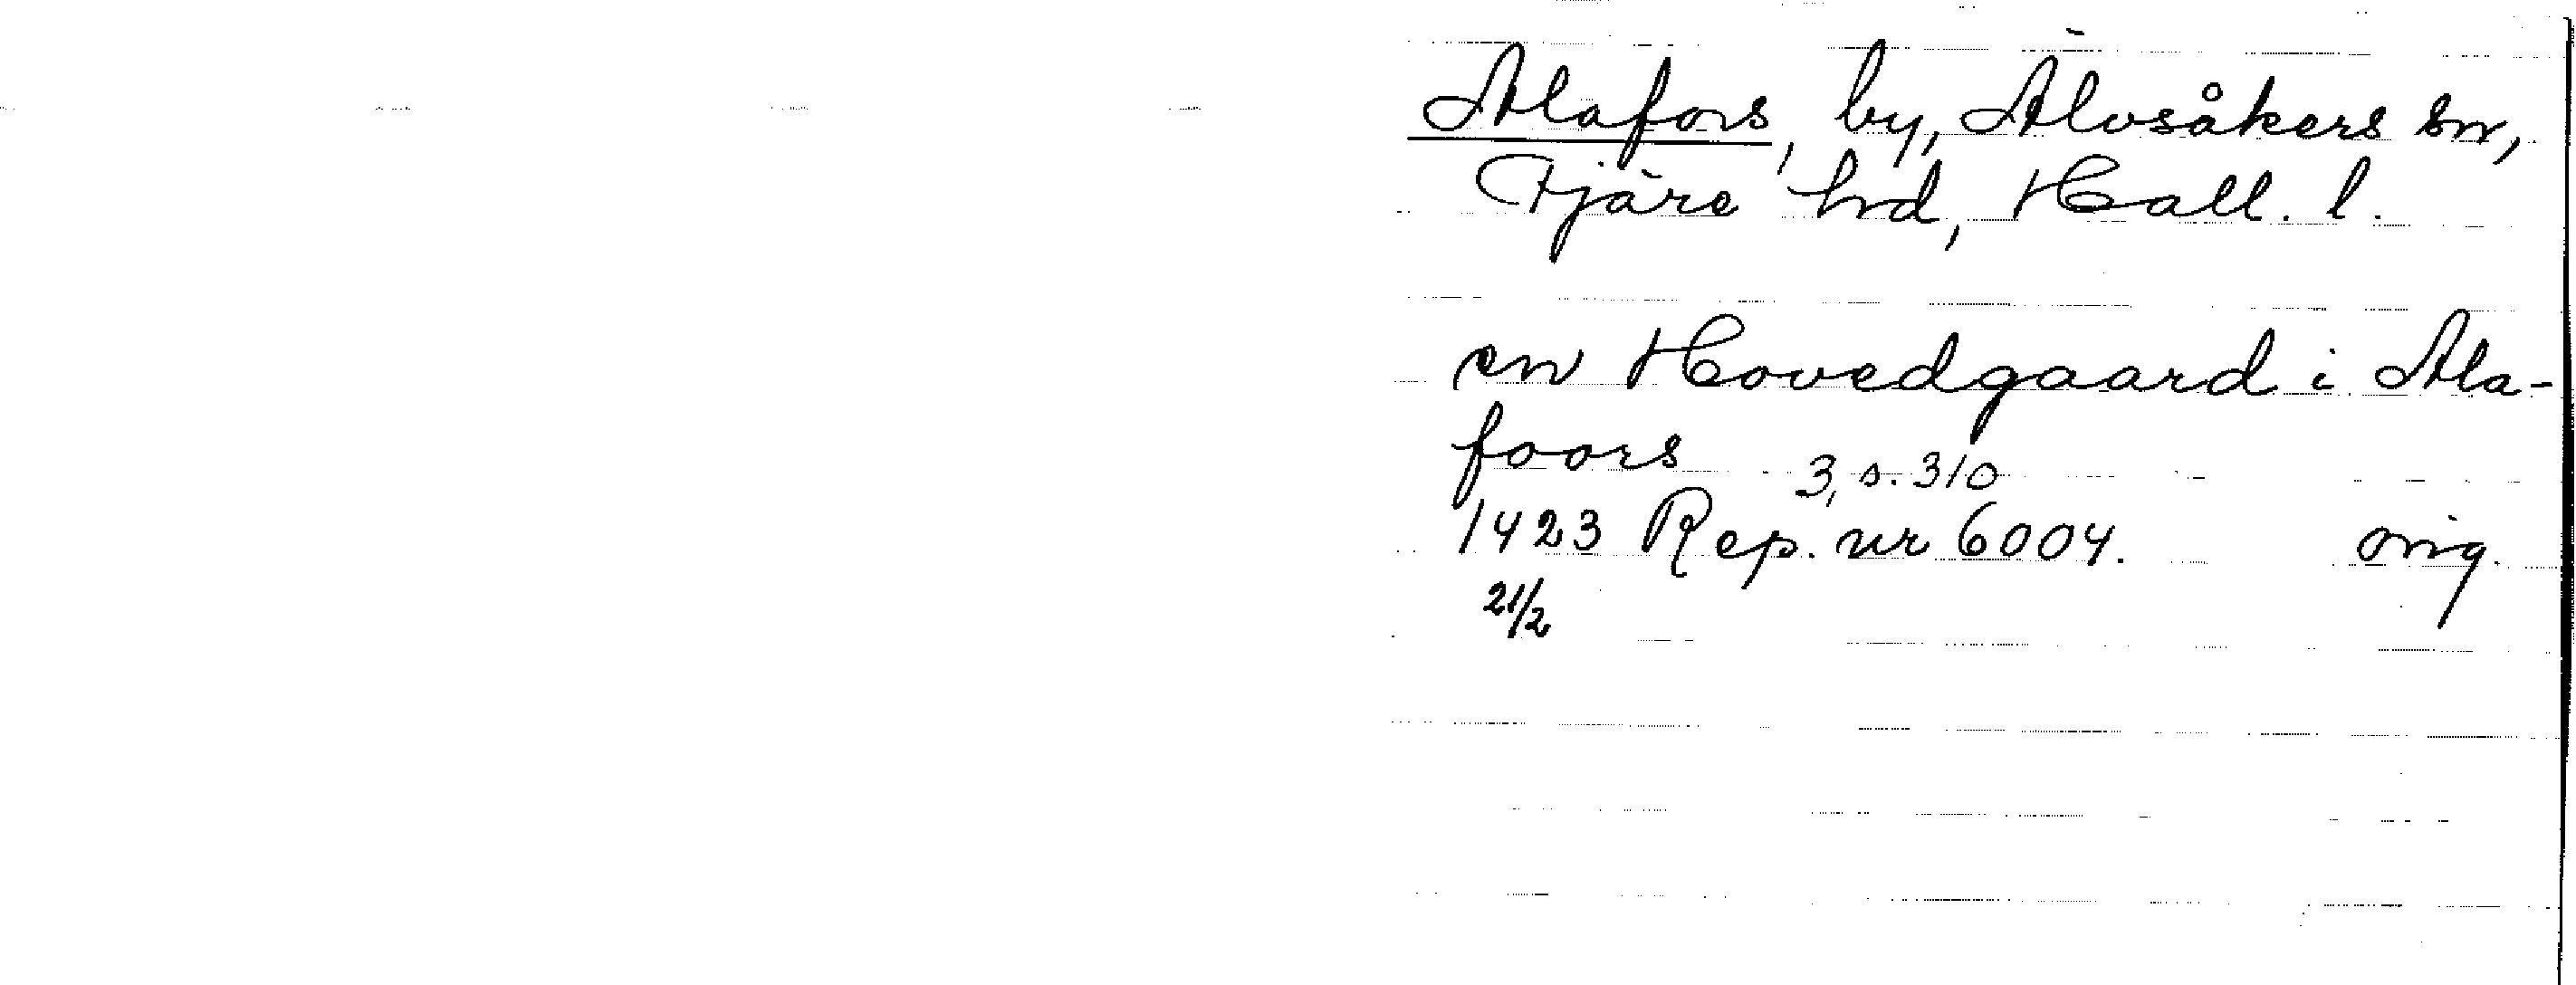 Alafors, by, Älvsåkers sn,
Fjäre hd, Hall. l.
en Hovedgaard i Ala-
foors 3, s. 310
1423 Rep. nr 6004. orig.
21/2